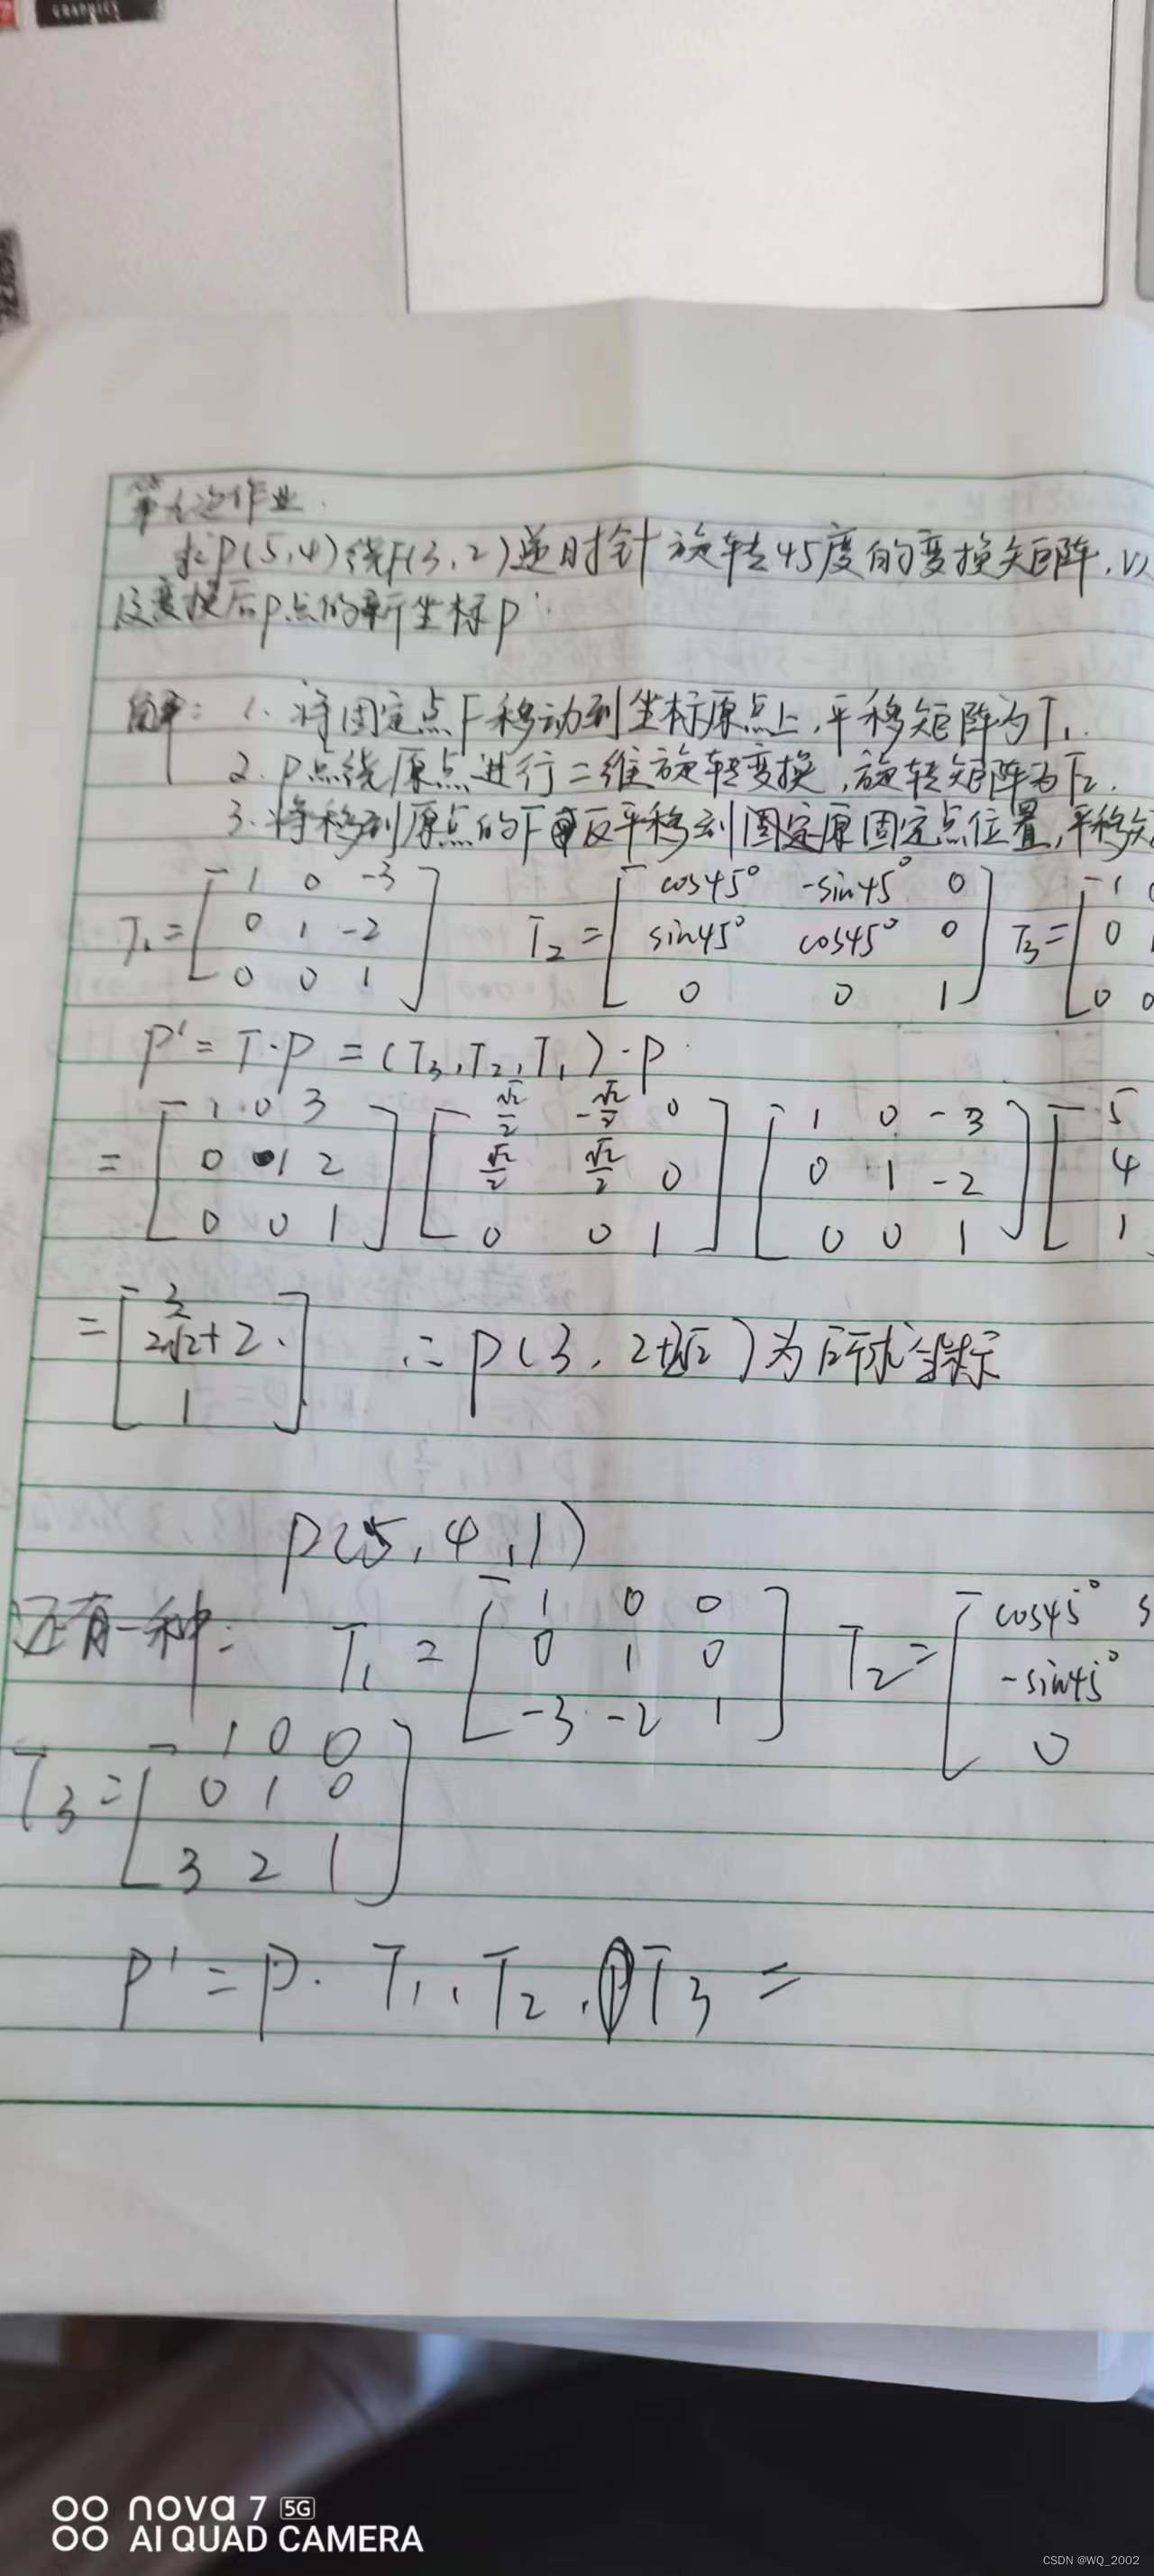 GRAPHICS
第七次作业.
求P(5,4)绕F(3,2)逆时针旋转45度的变换矩阵,以
及变换后P点的新坐标P'.
解: 1. 将固定点F移动到坐标原点上,平移矩阵为T₁.
2. P点绕原点进行二维旋转变换,旋转矩阵为T₂.
3. 将移到原点的F反平移到固定原固定点位置,平移矩
T₁ = [1 0 -3; 0 1 -2; 0 0 1] T₂ = [cos45° -sin45° 0; sin45° cos45° 0; 0 0 1] T₃ = [1 0; 0 1; 0 0
P' = T·P = (T₃,T₂,T₁)·P
= [1 0 3; 0 1 2; 0 0 1] [√2/2 -√2/2 0; √2/2 √2/2 0; 0 0 1] [1 0 -3; 0 1 -2; 0 0 1] [5; 4; 1
= [3; 2√2+2; 1] ∴ P(3, 2+2√2)为所求坐标
P(5,4,1)
还有一种: T₁ = [1 0 0; 0 1 0; -3 -2 1] T₂ = [cos45° s; -sin45°; 0
T₃ = [1 0 0; 0 1 0; 3 2 1]
P' = P · T₁, T₂, T₃ =
nova 7 5G
AI QUAD CAMERA
CSDN @WQ_2002